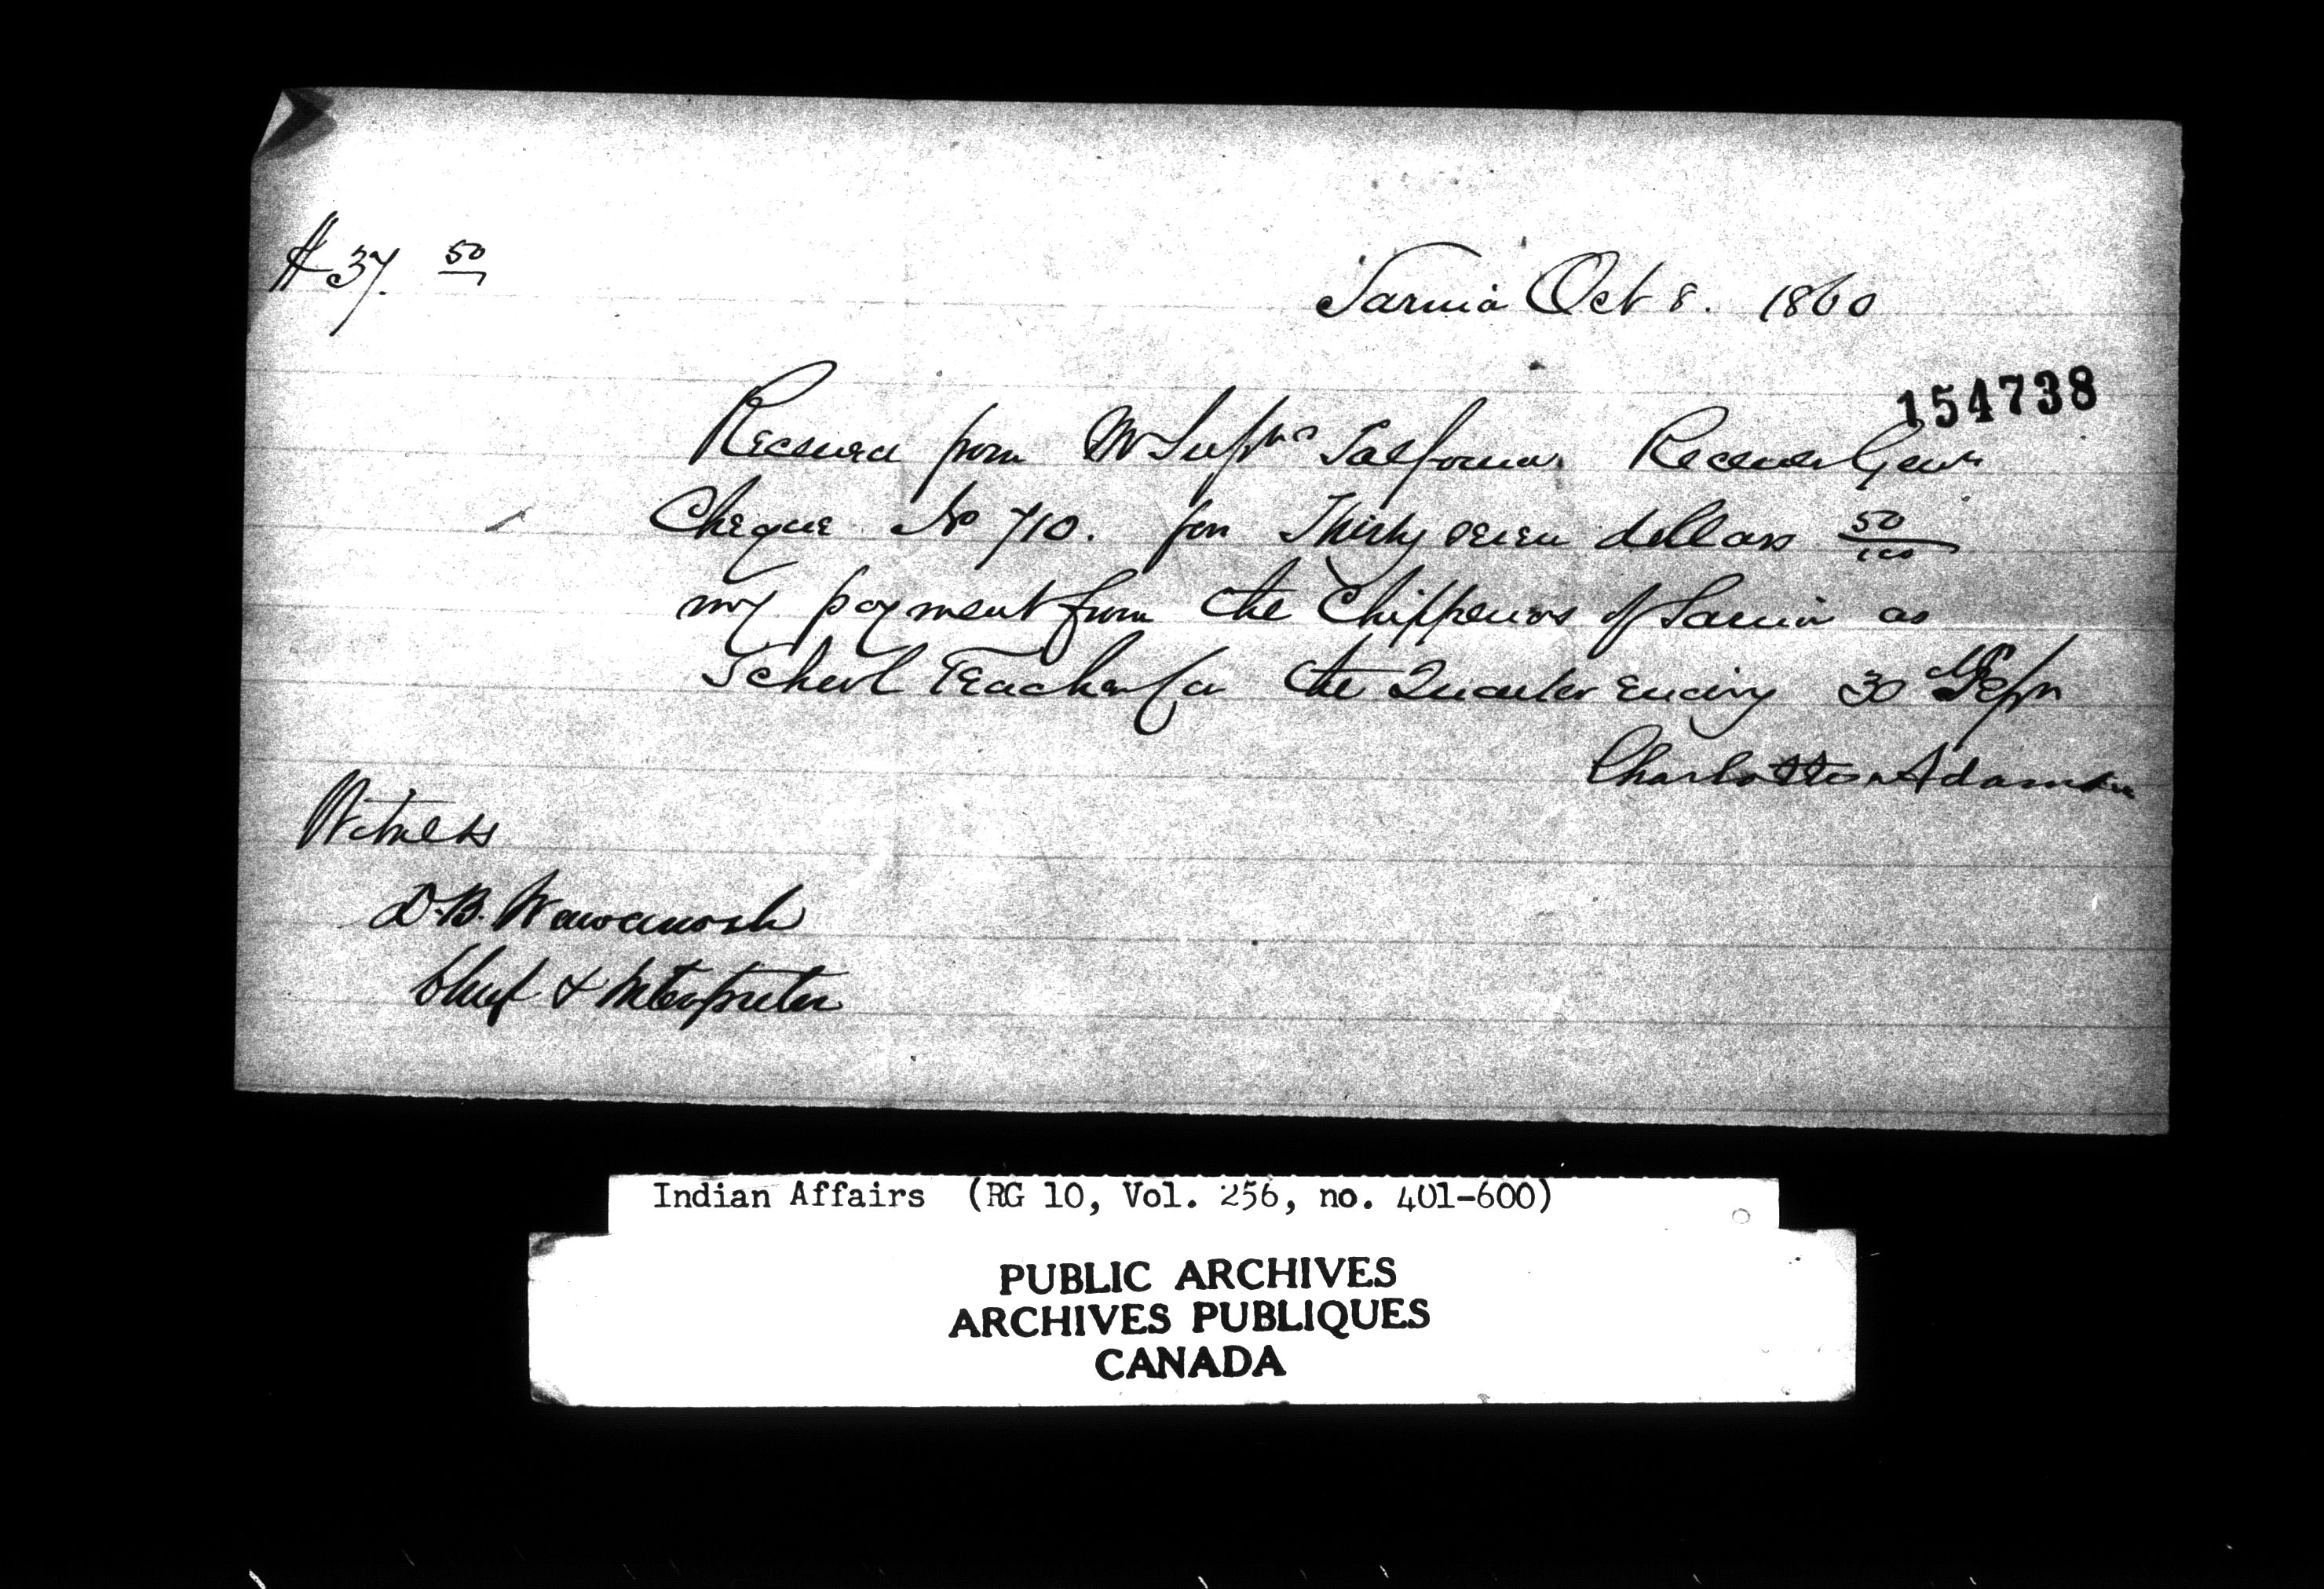 $37. 50
Sarnia Oct 8. 1860
154738
Received from Mr Supt Talfourd Receiver Genls
Cheque No 710. for Thirty seven dollars 50/100
my payment from the Chippewas of Sarnia as
School Teacher for the Quarter ending 30th Sept
Charlotte Adamson
Witness
D.B. Wawanosh
Chief & Interpreter
Indian Affairs (RG 10, Vol. 256, no. 401-600)
PUBLIC ARCHIVES
ARCHIVES PUBLIQUES
CANADA